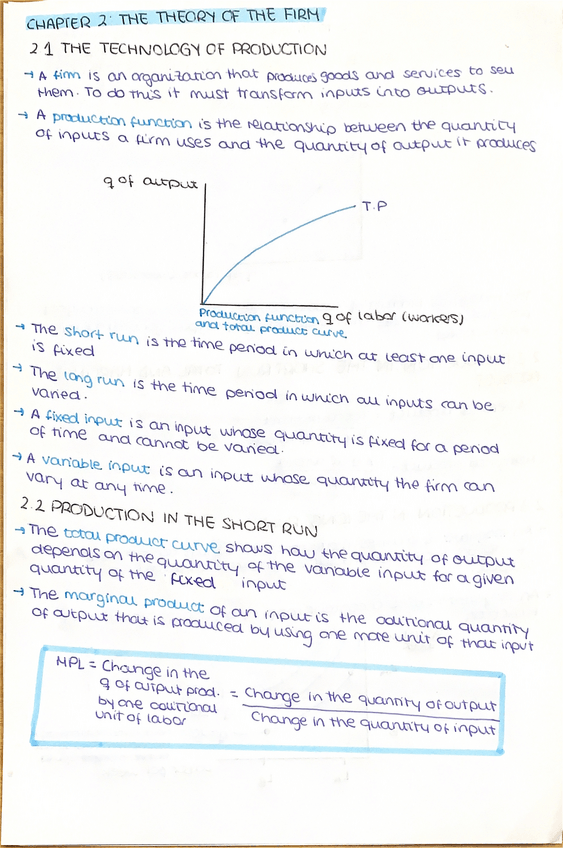 CHAPTER 2: THE THEORY OF THE FIRM
2.1 THE TECHNOLOGY OF PRODUCTION
→ A firm is an organization that produces goods and services to sell
them. To do this it must transform inputs into outputs.
→ A production function is the relationship between the quantity
of inputs a firm uses and the quantity of output it produces
q of output
T.P
Production function
and total product curve
q of labor (workers)
→ The short run is the time period in which at least one input
is fixed
→ The long run is the time period in which all inputs can be
varied.
→ A fixed input is an input whose quantity is fixed for a period
of time and cannot be varied.
→ A variable input is an input whose quantity the firm can
vary at any time.
2.2 PRODUCTION IN THE SHORT RUN
→ The total product curve shows how the quantity of output
depends on the quantity of the variable input for a given
quantity of the fixed input
→ The marginal product of an input is the aditional quantity
of output that is produced by using one more unit of that input
MPL = Change in the
q of output prod.
by one aditional
unit of labor
= Change in the quantity of output
Change in the quantity of input